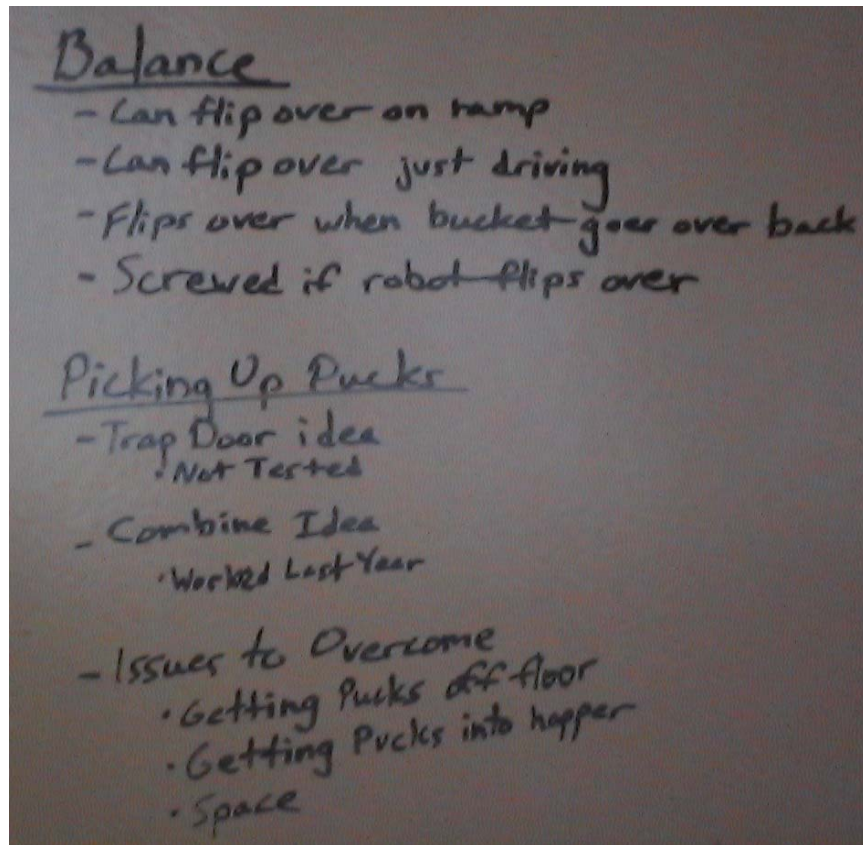 Balance
- Can flip over on ramp
- Can flip over just driving
- Flips over when bucket goes over back
- Screwed if robot flips over
Picking Up Pucks
- Trap Door idea
· Not Tested
- Combine Idea
· Worked Last Year
- Issues to Overcome
· Getting Pucks off floor
· Getting Pucks into hopper
· Space